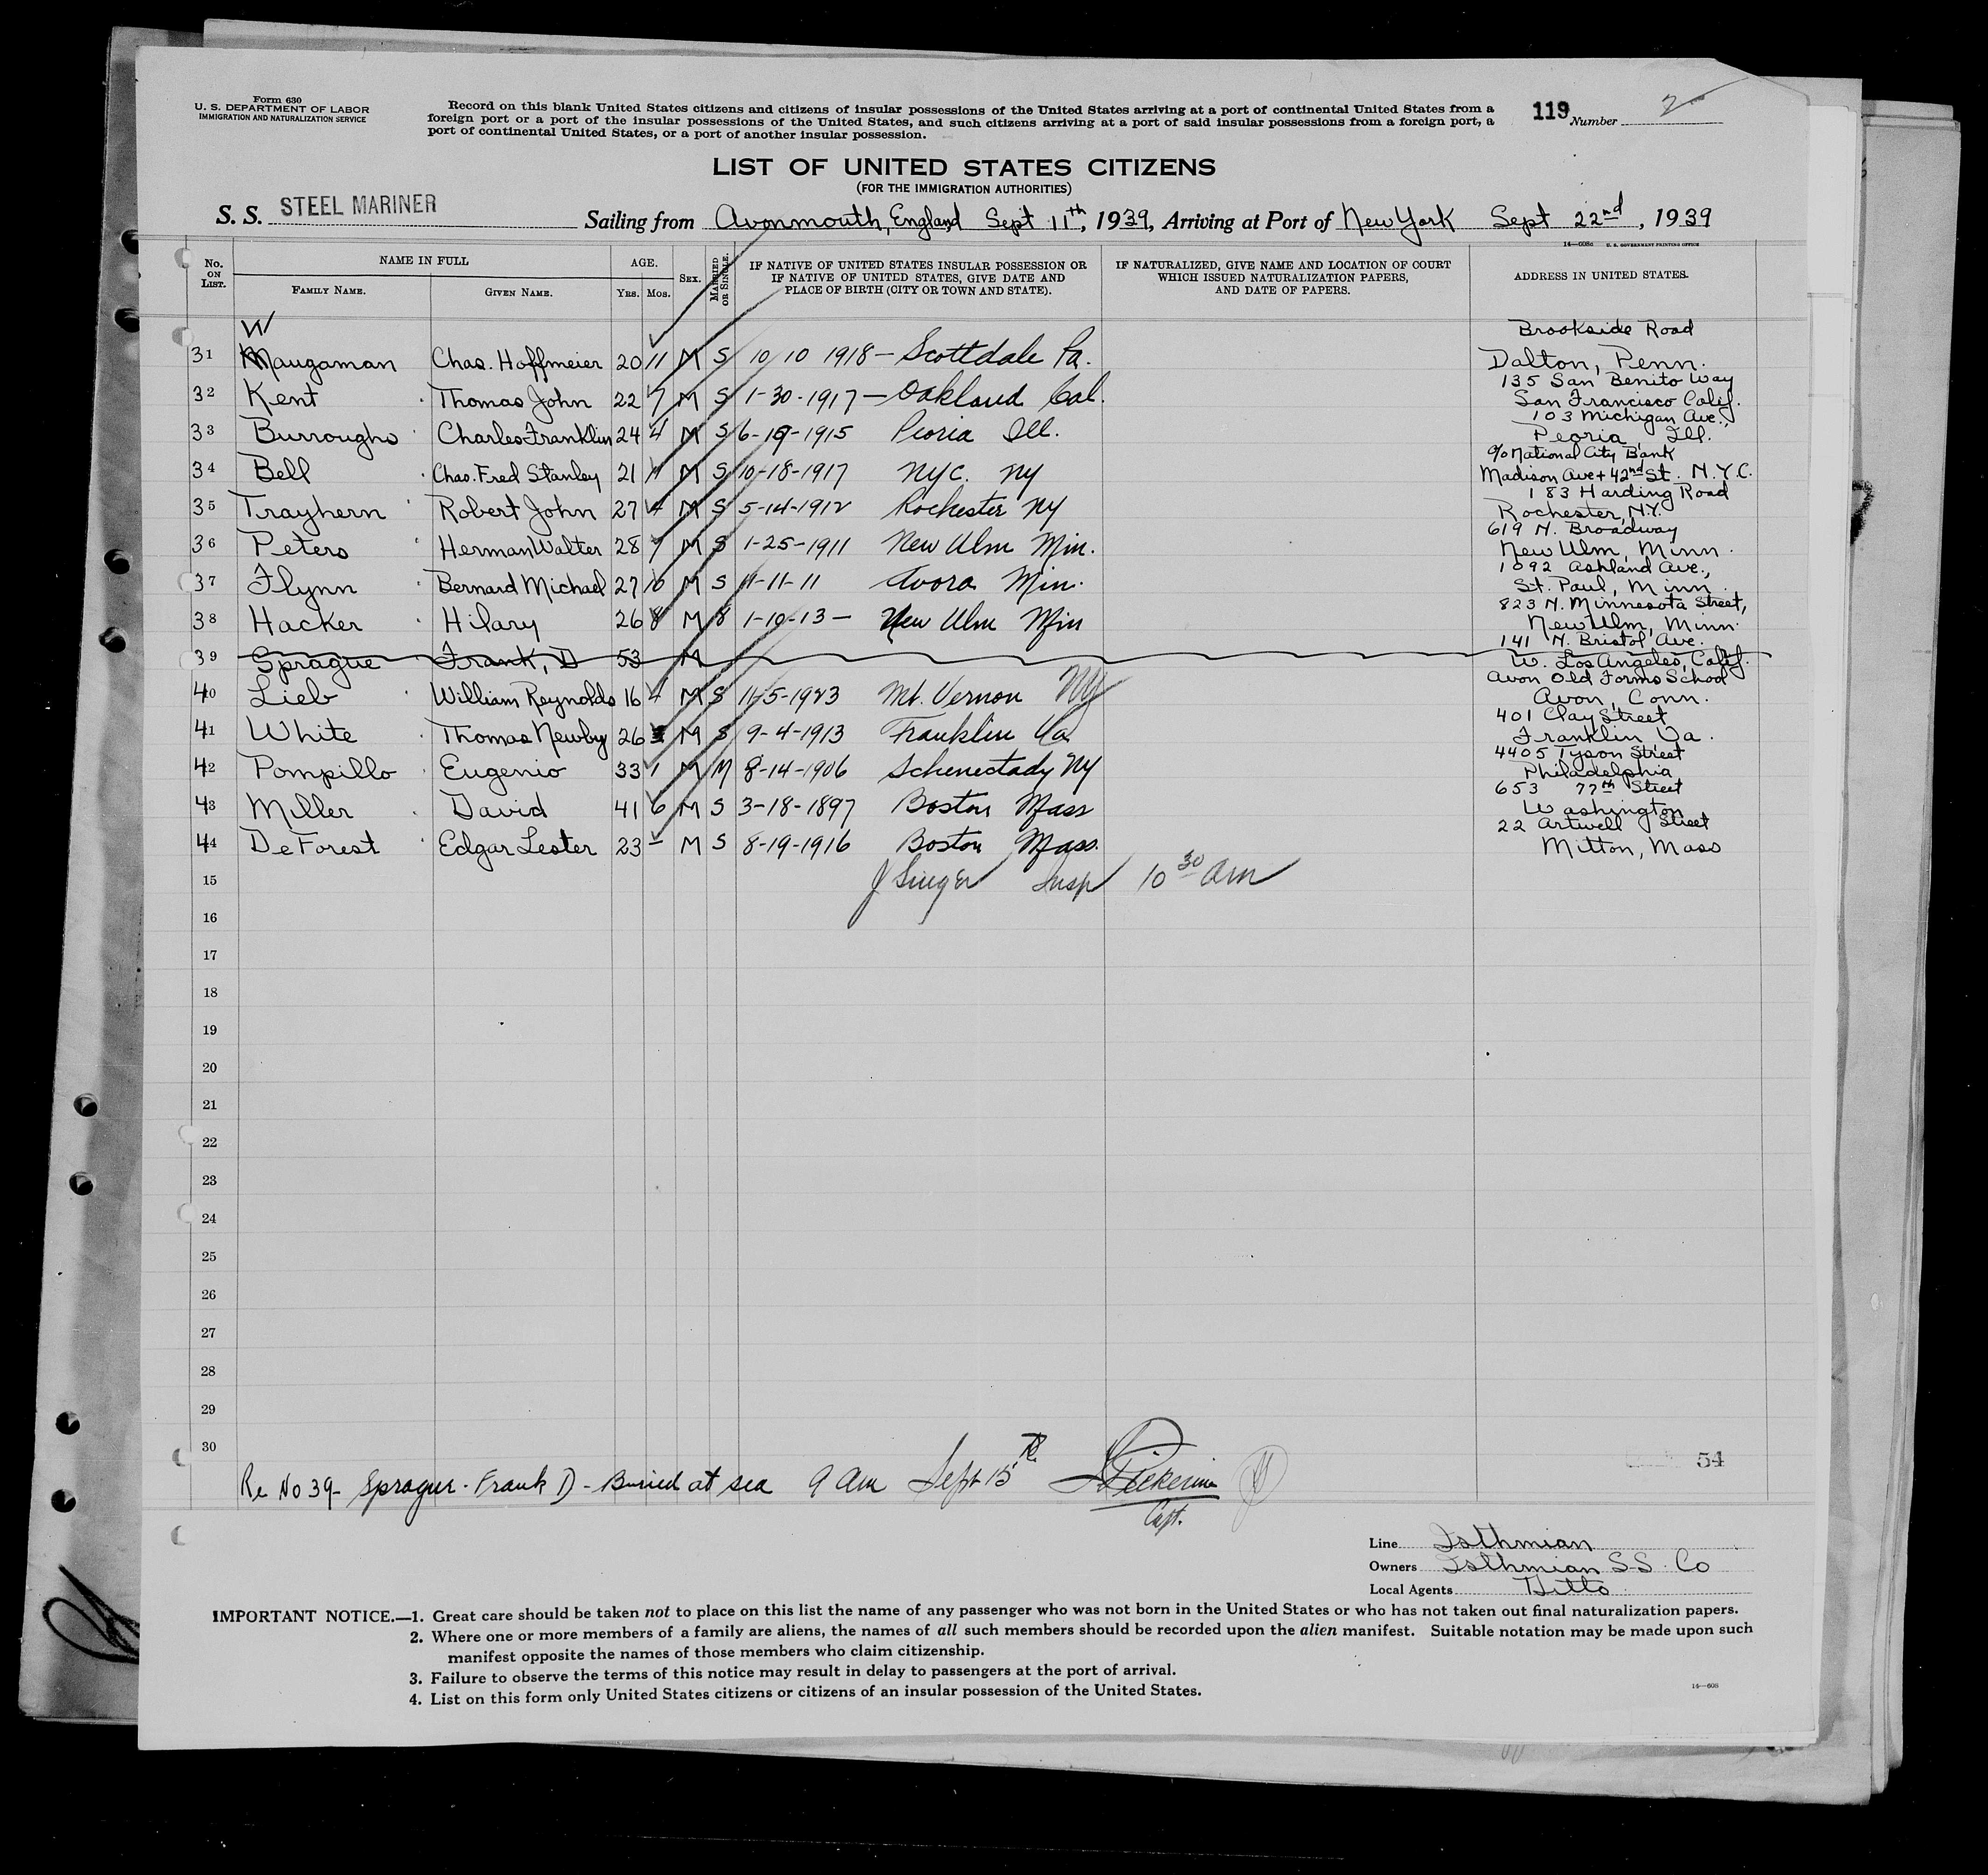 Form 630
U. S. DEPARTMENT OF LABOR
IMMIGRATION AND NATURALIZATION SERVICE
Record on this blank United States citizens and citizens of insular possessions of the United States arriving at a port of continental United States from a
foreign port or a port of the insular possessions of the United States, and such citizens arriving at a port of said insular possessions from a foreign port, a
port of continental United States, or a port of another insular possession.
119 Number 2
LIST OF UNITED STATES CITIZENS
(FOR THE IMMIGRATION AUTHORITIES)
S. S. STEEL MARINER Sailing from Avonmouth, England Sept 11th, 1939, Arriving at Port of New York Sept 22nd, 1939
14—608d U. S. GOVERNMENT PRINTING OFFICE
No. ON LIST.
NAME IN FULL
FAMILY NAME.
GIVEN NAME.
AGE.
YRS. MOS.
SEX.
MARRIED OR SINGLE.
IF NATIVE OF UNITED STATES INSULAR POSSESSION OR
IF NATIVE OF UNITED STATES, GIVE DATE AND
PLACE OF BIRTH (CITY OR TOWN AND STATE).
IF NATURALIZED, GIVE NAME AND LOCATION OF COURT
WHICH ISSUED NATURALIZATION PAPERS,
AND DATE OF PAPERS.
ADDRESS IN UNITED STATES.
W
Brookside Road
31 Maugaman Chas. Hoffmeier 20 11 M S 10/10 1918 — Scottdale Pa. Dalton, Penn.
135 San Benito Way
32 Kent Thomas John 22 7 M S 1-30-1917 — Oakland Cal. San Francisco Calif.
103 Michigan Ave.,
33 Burroughs Charles Franklin 24 4 M S 6-19-1915 Peoria Ill. Peoria, Ill.
c/o National City Bank
34 Bell Chas. Fred Stanley 21 11 M S 10-18-1917 NYC. NY Madison Ave + 42nd St. N.Y.C.
183 Harding Road
35 Trayhern Robert John 27 4 M S 5-14-1912 Rochester NY Rochester, N.Y.
619 N. Broadway
36 Peters Herman Walter 28 7 M S 1-25-1911 New Ulm Min. New Ulm, Minn.
1092 Ashland Ave.,
37 Flynn Bernard Michael 27 10 M S 11-11-11 Avora Min. St. Paul, Minn.
823 N. Minnesota Street,
38 Hacker Hilary 26 8 M S 1-10-13 — New Ulm Min New Ulm, Minn.
141 N. Bristol Ave.
39 Sprague Frank, D 53 M W. Los Angeles, Calif.
Avon Old Farms School
40 Lieb William Reynolds 16 4 M S 11-5-1923 Mt. Vernon NY Avon, Conn.
401 Clay Street
41 White Thomas Newby 26 M S 9-4-1913 Franklin Va Franklin Va.
4405 Tyson Street
42 Pompillo Eugenio 33 1 M M 8-14-1906 Schenectady NY Philadelphia
653 77th Street
43 Miller David 41 6 M S 3-18-1897 Boston Mass Washington
22 Artwell Street
44 DeForest Edgar Lester 23 — M S 8-19-1916 Boston Mass. Milton, Mass
15 J Singer Insp 10 30 am
16
17
18
19
20
21
22
23
24
25
26
27
28
29
30
54
Re No 39 - Sprague - Frank D - Buried at sea 9 am Sept 15th Pickering
Capt.
Line Isthmian
Owners Isthmian S.S. Co
Local Agents Ditto
IMPORTANT NOTICE.—1. Great care should be taken not to place on this list the name of any passenger who was not born in the United States or who has not taken out final naturalization papers.
2. Where one or more members of a family are aliens, the names of all such members should be recorded upon the alien manifest. Suitable notation may be made upon such
manifest opposite the names of those members who claim citizenship.
3. Failure to observe the terms of this notice may result in delay to passengers at the port of arrival.
4. List on this form only United States citizens or citizens of an insular possession of the United States.
14—608